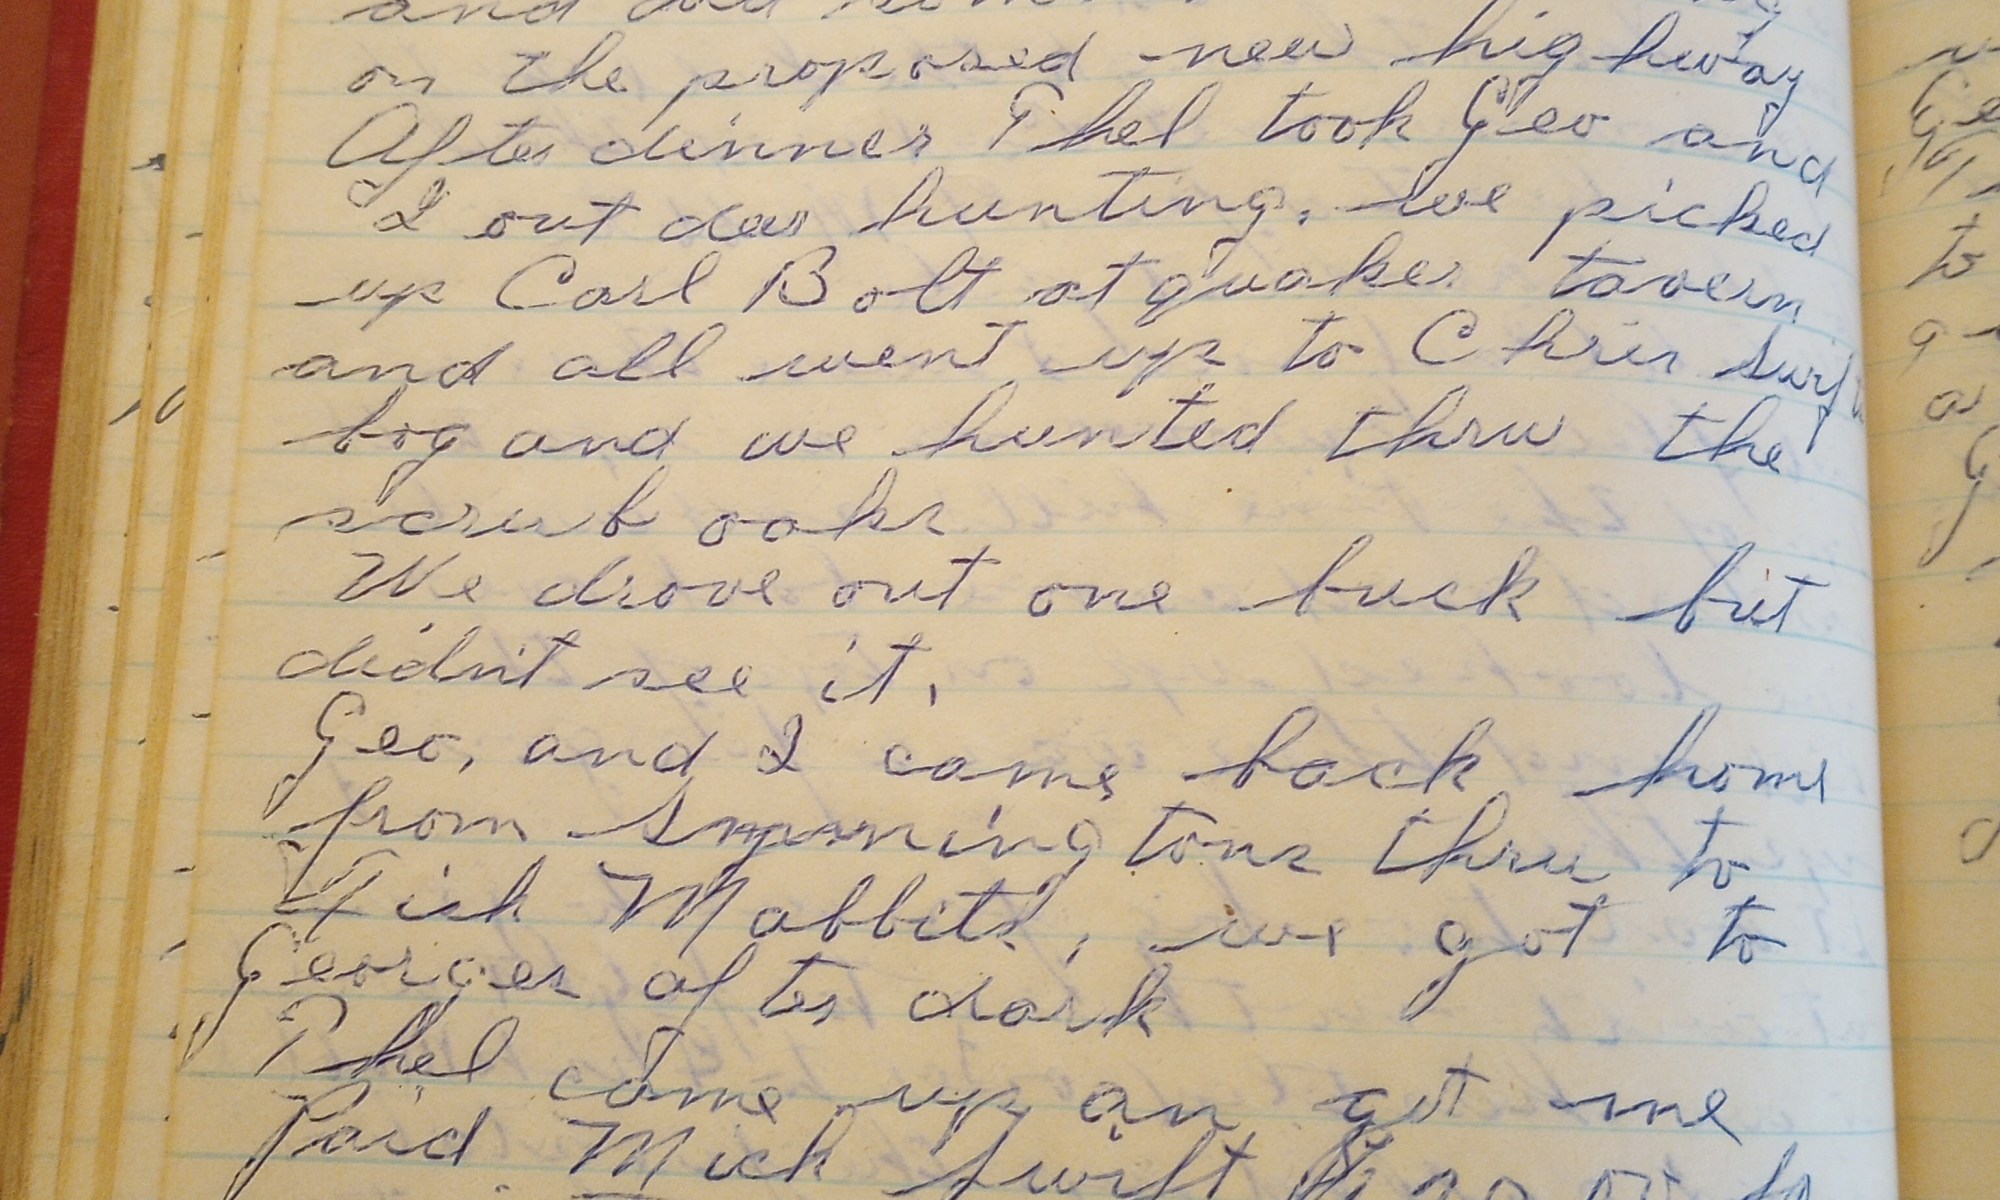 and did some
on the proposed new highway
After dinner Phel took Geo and
I out deer hunting, we picked
up Carl Bolt at quaker tavern
and all went up to Chris Swift
bog and we hunted thru the
scrub oaks
We drove out one buck but
didn't see it.
Geo, and I came back home
from thru to
Mabbits, we got to
Georges after dark
Phel come up an got me
Paid Mick Swift